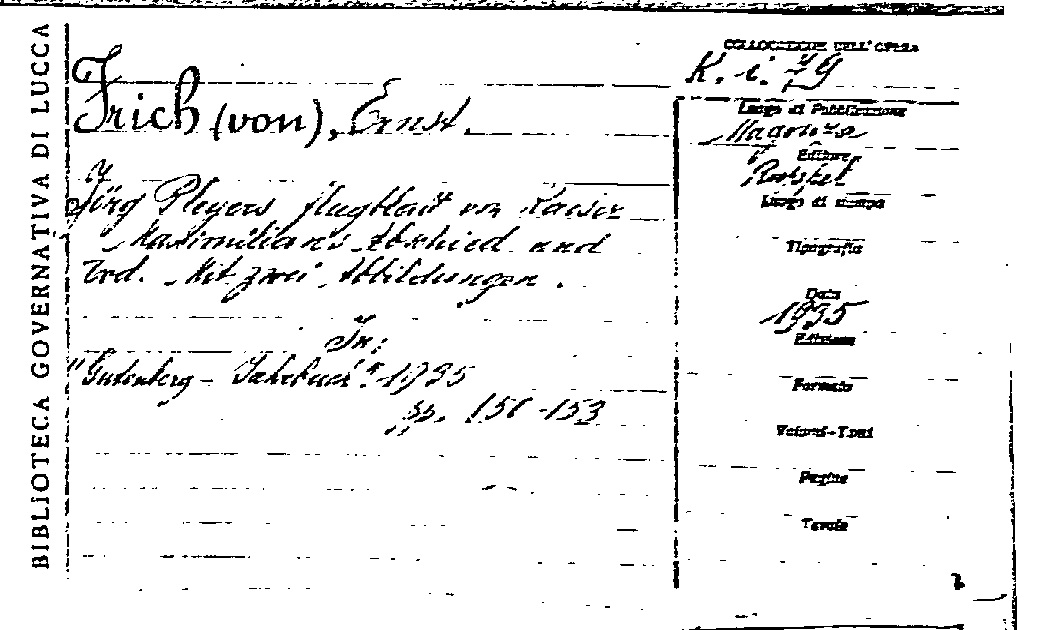 BIBLIOTECA GOVERNATIVA DI LUCCA
Frich (von), Ernst.
Jörg Pleyers flugblatt von Kaiser
Maximilian's Abschied und
Tod. Mit zwei Abbildungen.
In:
"Gutenberg - Jahrbuch" 1935
pp. 150-153
COLLOCAZIONE DELL'OPERA
K. i. 79
Luogo di Pubblicazione
Magonza
Editore
Luogo di stampa
Tipografia
Data
1935
Edizione
Formato
Volumi-Tomi
Pagine
Tavole